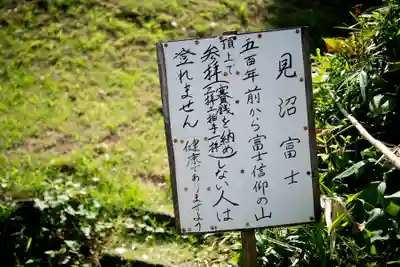 見沼富士
五百年前から富士信仰の山
頂上で
参拝(賽銭を納め)しない人は
二拝二拍手一拝
登れません
健康でありますよう